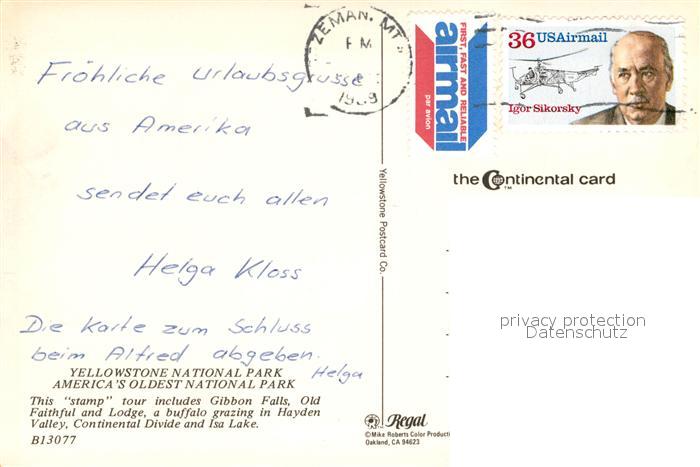 ZEMAN, MT
PM
1989
FIRST, FAST AND RELIABLE
airmail
par avion
36 USAirmail
Igor Sikorsky
Fröhliche Urlaubsgrüsse
aus Amerika
sendet euch allen
Helga Kloss
Die Karte zum Schluss
beim Alfred abgeben.
Helga
YELLOWSTONE NATIONAL PARK
AMERICA'S OLDEST NATIONAL PARK
This "stamp" tour includes Gibbon Falls, Old
Faithful and Lodge, a buffalo grazing in Hayden
Valley, Continental Divide and Isa Lake.
B13077
Yellowstone Postcard Co.
the Continental card
TM
privacy protection
Datenschutz
Regal
©Mike Roberts Color Producti
Oakland, CA 94623